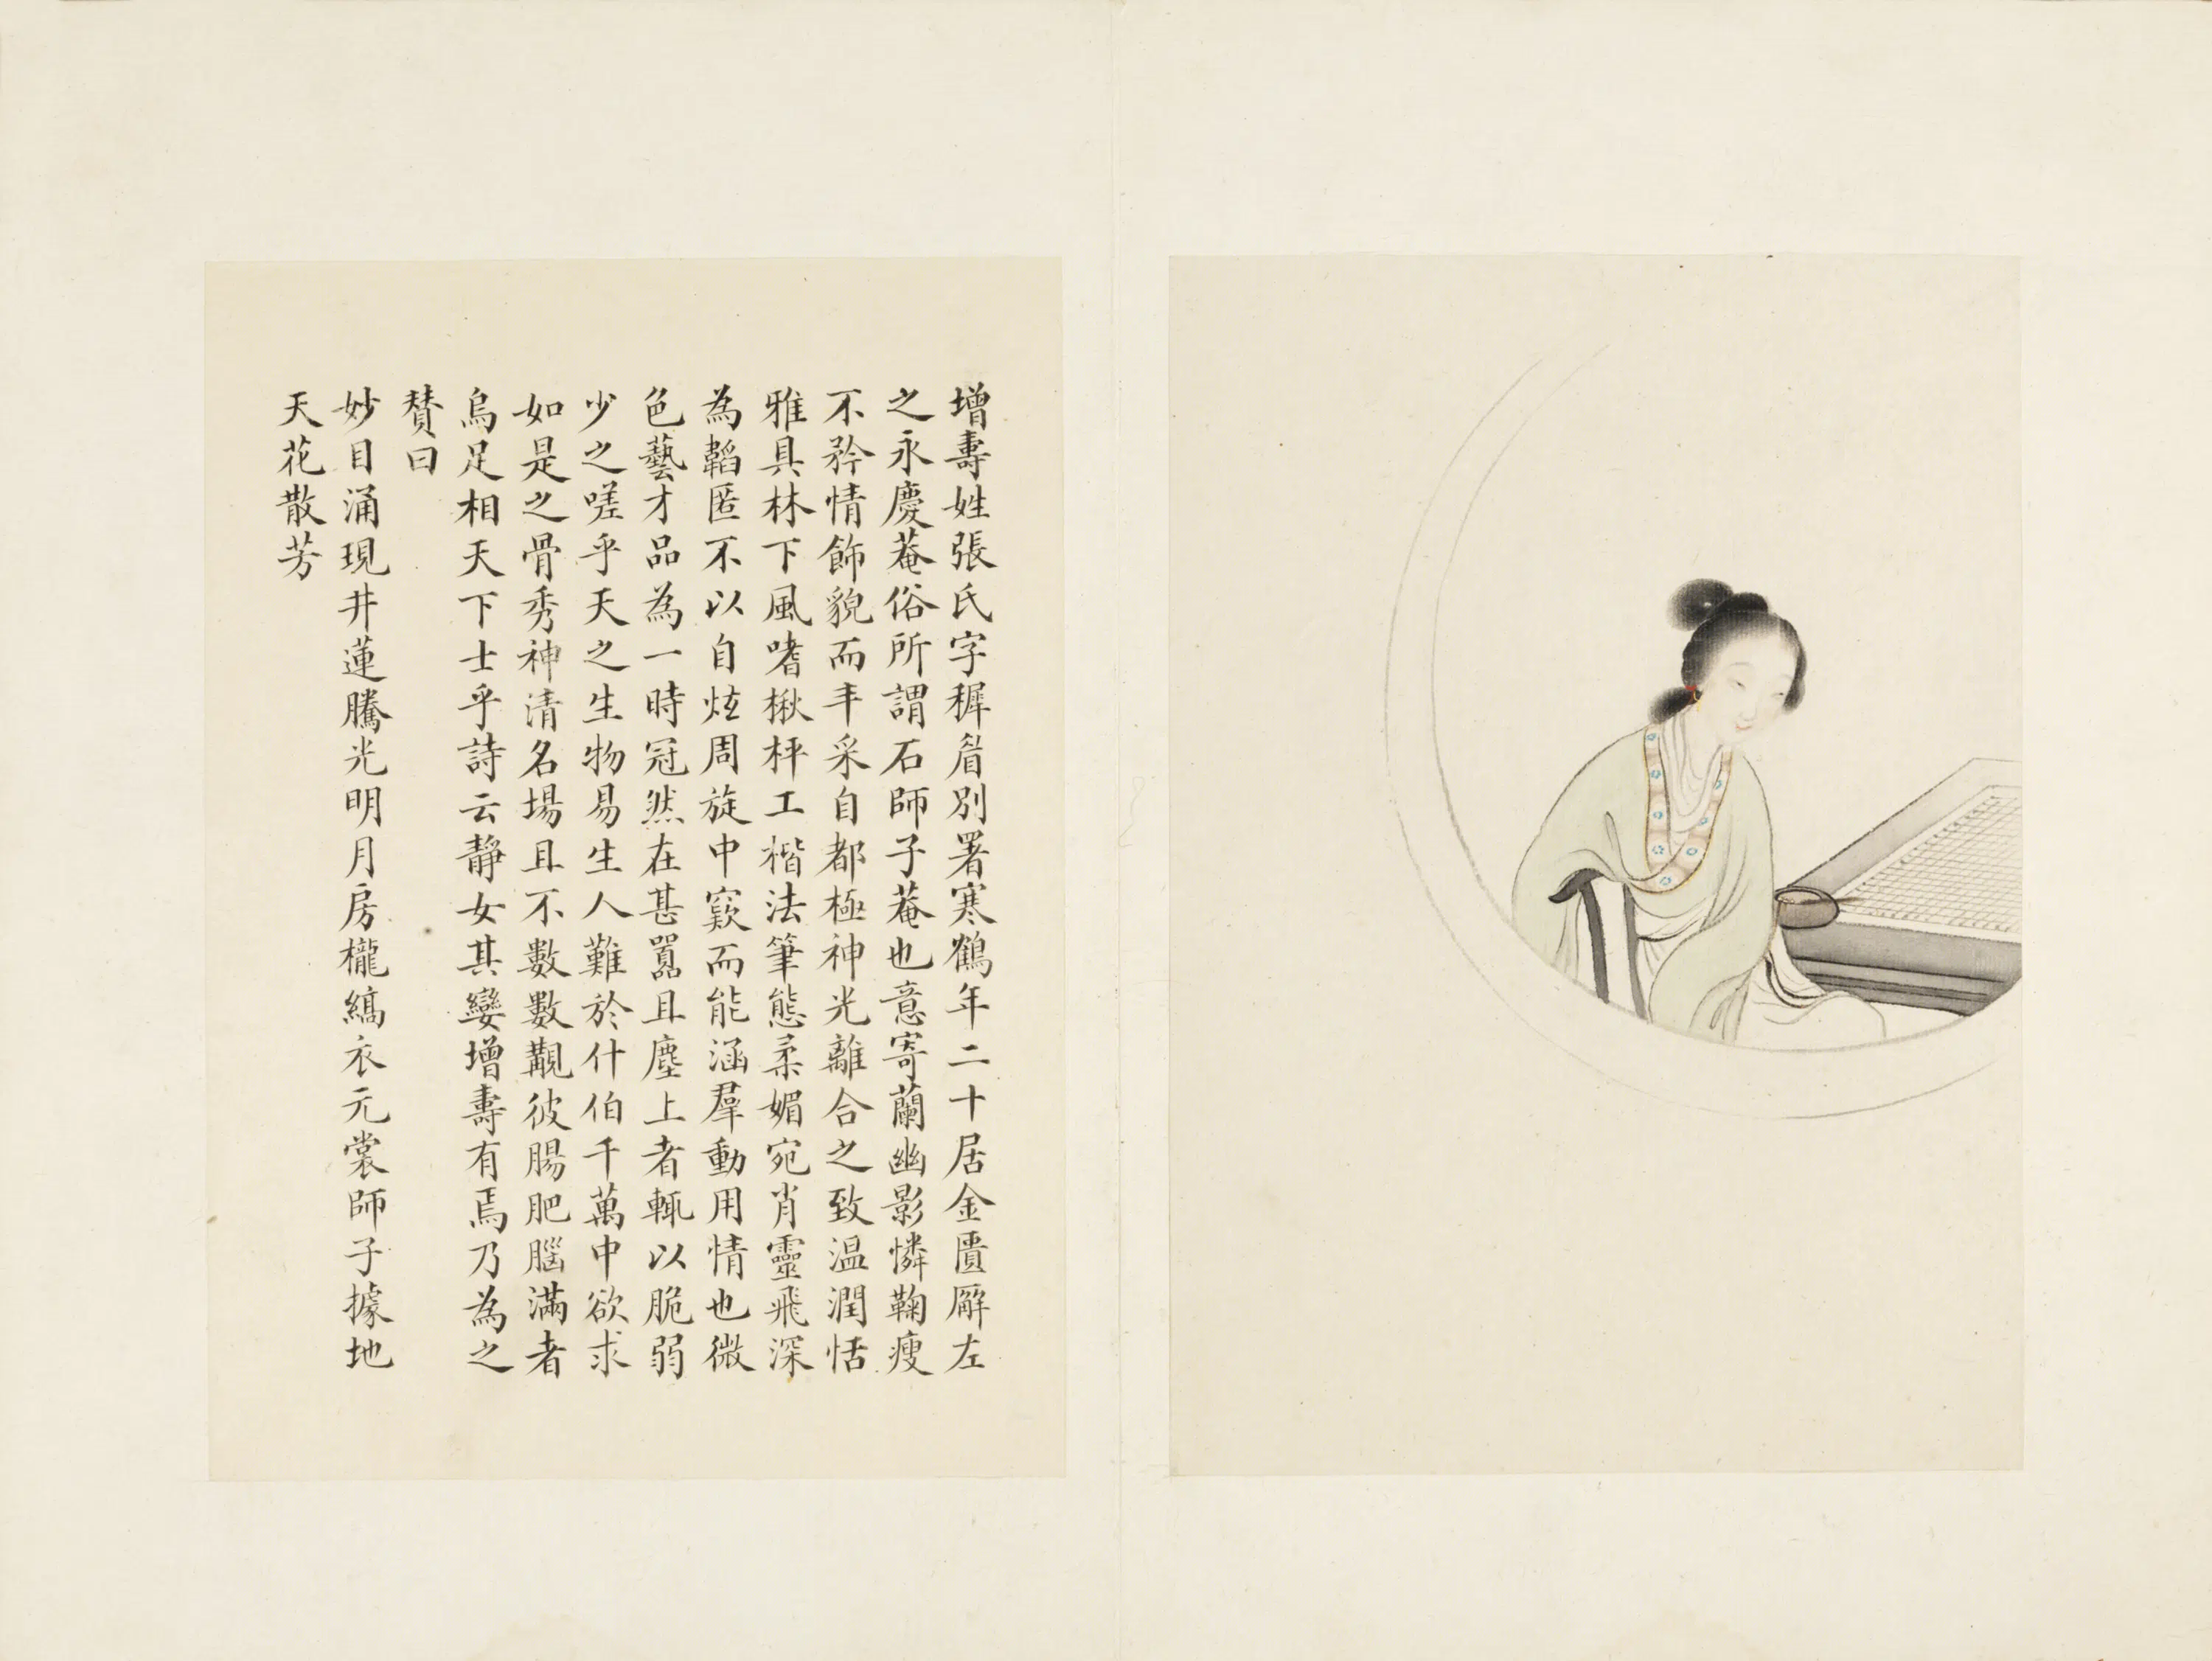 增壽姓張氏字穉眉別署寒鶴年二十居金匱廨左
之永慶菴俗所謂石師子菴也意寄蘭幽影憐鞠瘦
不矜情飾貌而丰采自都極神光離合之致溫潤恬
雅具林下風嗜楸枰工楷法筆態柔媚宛肖靈飛深
為韜匿不以自炫周旋中窾而能涵羣動用情也微
色藝才品為一時冠然在甚囂且塵上者輒以脆弱
少之嗟乎天之生物易生人難於什伯千萬中欲求
如是之骨秀神清名場且不數數覯彼腸肥腦滿者
烏足相天下士乎詩云靜女其孌增壽有焉乃為之
贊曰
妙目涌現井蓮騰光明月房櫳縞衣元裳師子據地
天花散芳